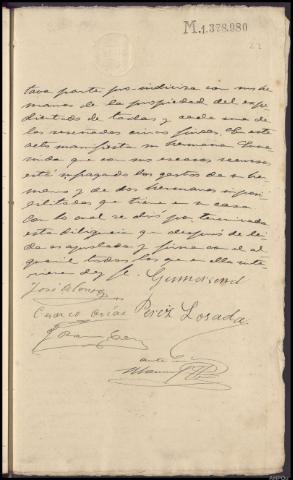 M.1.378.980
tava parte pro-indivisa con sus her
manos de la propiedad del espe
dientado de todas y cada una de
las reseñadas cinco fincas. En este
acto manifiesta su hermana
que con sus escasos recursos
está sufragando los gastos de su her
mano y de dos hermanos imposi
bilitados que tiene en su casa
Con lo cual se dió por terminada
esta diligencia que despues de lei
da es aprobada y firma con el al
guacil todos los que en ella inter
vienen doy fe. Gumersind
José
Perez Losada
ante mi